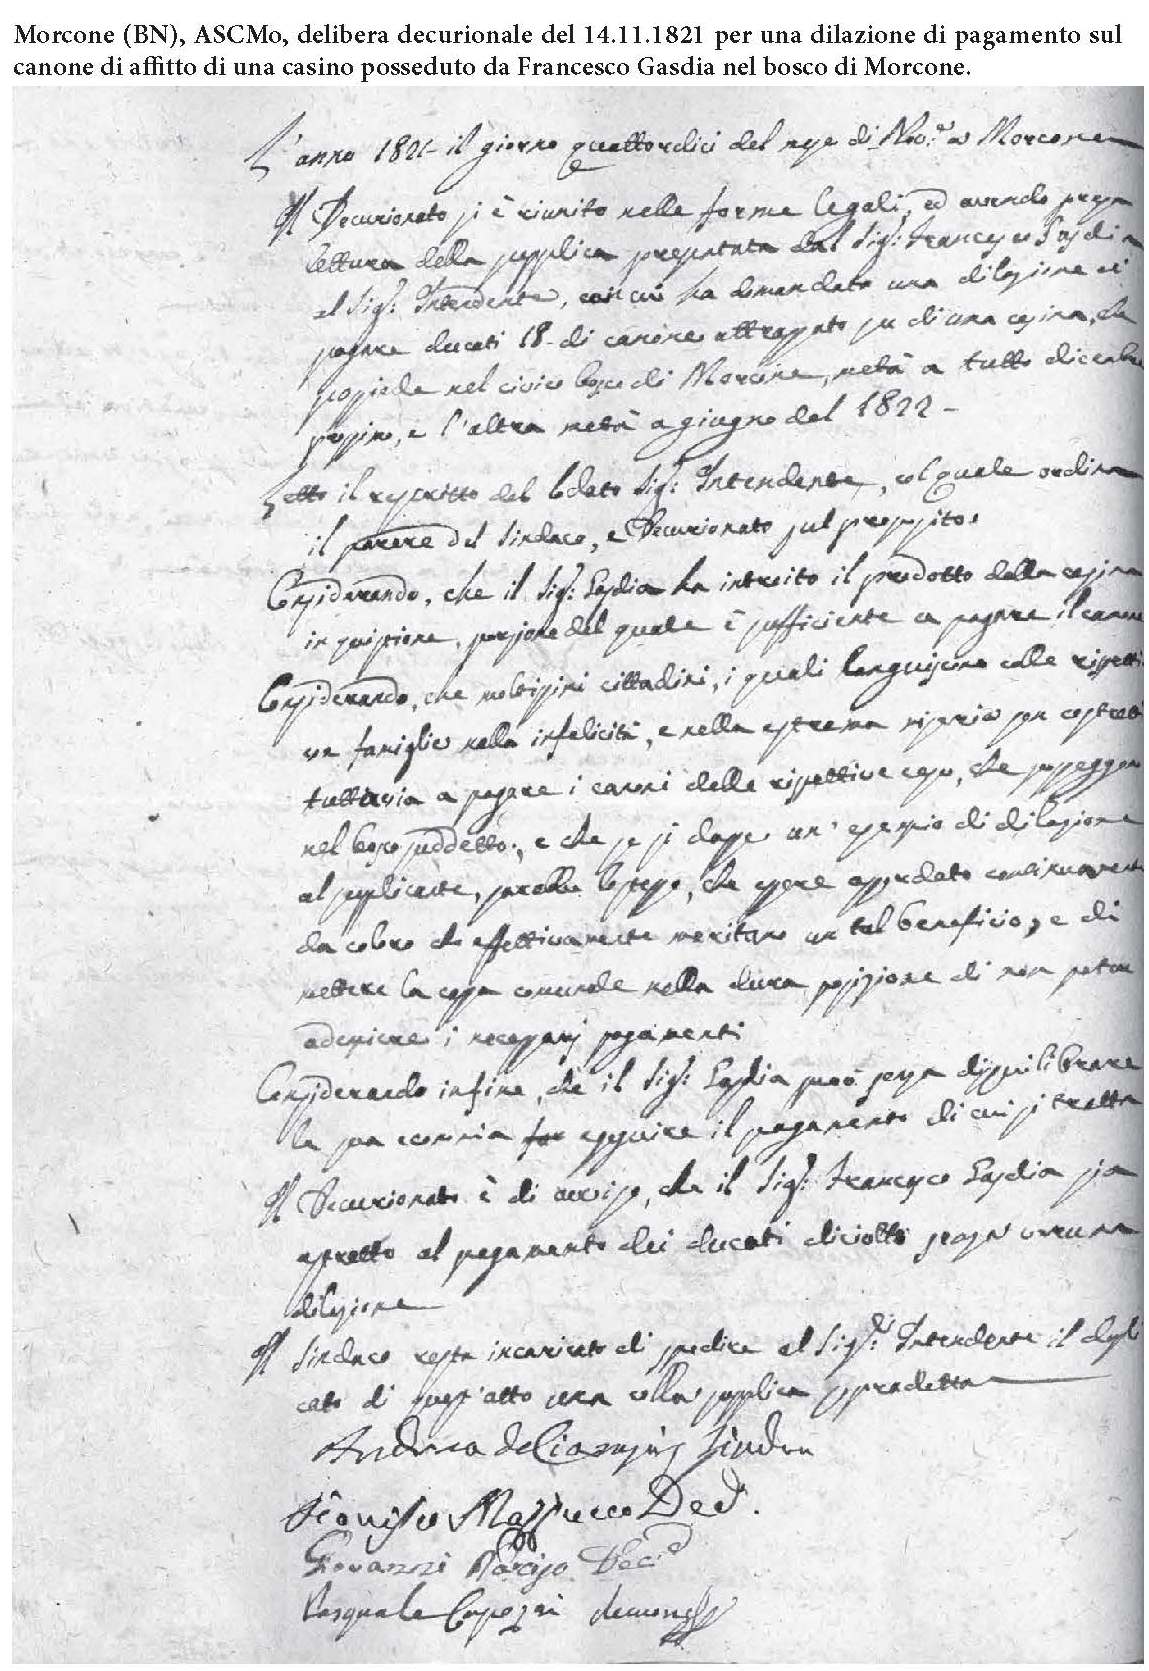 Morcone (BN), ASCMo, delibera decurionale del 14.11.1821 per una dilazione di pagamento sul
canone di affitto di una casino posseduto da Francesco Gasdia nel bosco di Morcone.
L'anno 1821 il giorno quattordici del mese di Nov.e a Morcone
Il Decurionato si è riunito nelle forme legali, ed avendo presa
lettura della supplica presentata dal Sig.r Francesco Gasdia
al Sig.r Intendente, con cui ha domandato una dilazione di
pagare ducati 18 di canone attrassato su di una casina, che
possiede nel civico bosco di Morcone, metà a tutto dicembre
prossimo, e l'altra metà a giugno del 1822 -
Letto il rescritto del lodato Sig.r Intendente, col quale ordina
il parere del Sindaco, e Decurionato sul proposito.
Considerando, che il Sig.r Gasdia ha introito il prodotto della casina
in quistione, porzione del quale è sufficiente a pagare il canone
Considerando, che moltissimi cittadini, i quali languiscono colle rispetti
ve famiglie nella infelicità, e nella estrema miseria son costretti
tuttavia a pagare i canoni delle rispettive case, che posseggono
nel bosco suddetto, e che se si dasse un' esempio di dilazione
al supplicante, sarebbe lo stesso, che essere assordato continuamente
da coloro che effettivamente meritano un tal beneficio, e di
mettere la cassa comunale nella dura posizione di non poter
adempiere i necessarj pagamenti
Considerando infine, che il Sig.r Gasdia può senza disquilibrare
la sua economia eseguire il pagamento di cui si tratta
Il Decurionato è di avviso, che il Sig.r Francesco Gasdia sia
astretto al pagamento dei ducati diciotto senza veruna
dilazione
Il Sindaco resta incaricato di spedire al Sig.r Intendente il dupli
cato di quest'atto una colla supplica sopradetta
Andrea de Ciampis Sindaco
Dionisio Mazzucco Dec.
Giovanni Narciso Dec.e
Pasquale Capozzi